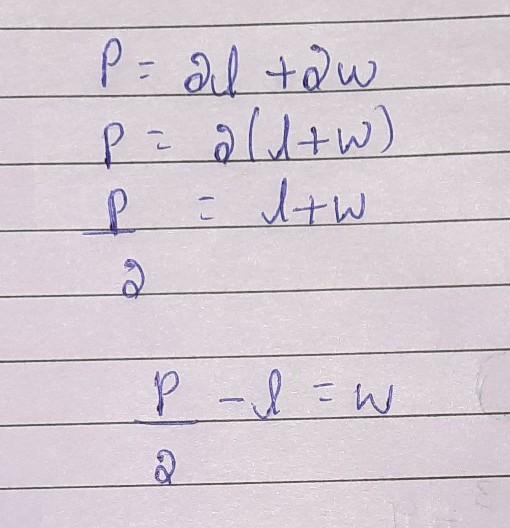 P = 2l + 2w
P = 2(l+w)
P/2 = l+w
P/2 - l = w